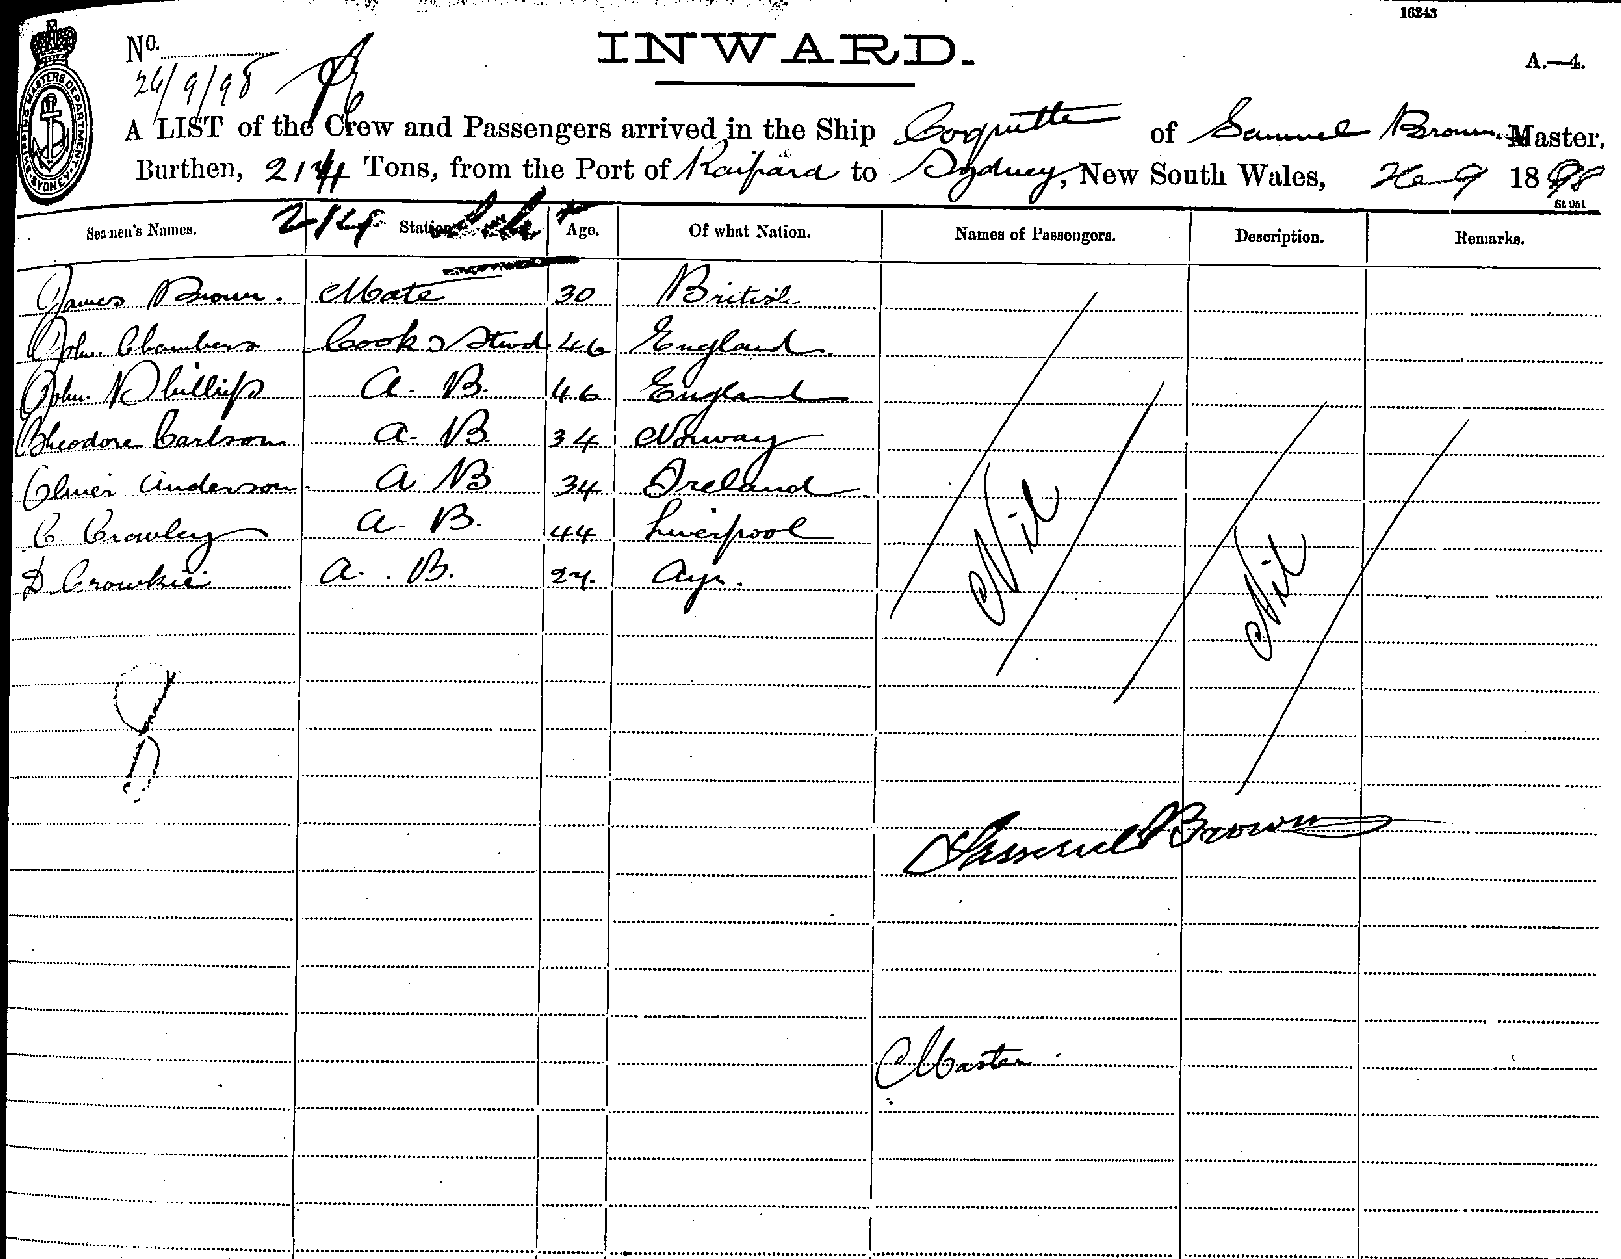 16243
No.
INWARD.
A.—4.
26/9/98
A LIST of the Crew and Passengers arrived in the Ship Coquette of Samuel Brown, Master,
Burthen, 214 Tons, from the Port of Kaipara to Sydney, New South Wales, 26-9 1898
Seamen's Names. 214 Station. Age. Of what Nation. Names of Passengers. Description. Remarks.
James Brown. Mate 30 British
John Chambers Cook & Stwd 46 England
John Phillips A. B. 46 England
Theodore Carlson A. B 34 Norway
Oliver Anderson A B 34 Ireland
C Crowley A. B. 44 Liverpool
D Crowkie A. B. 27. Ayr.
Nil
Nil
Samuel Brown
Master